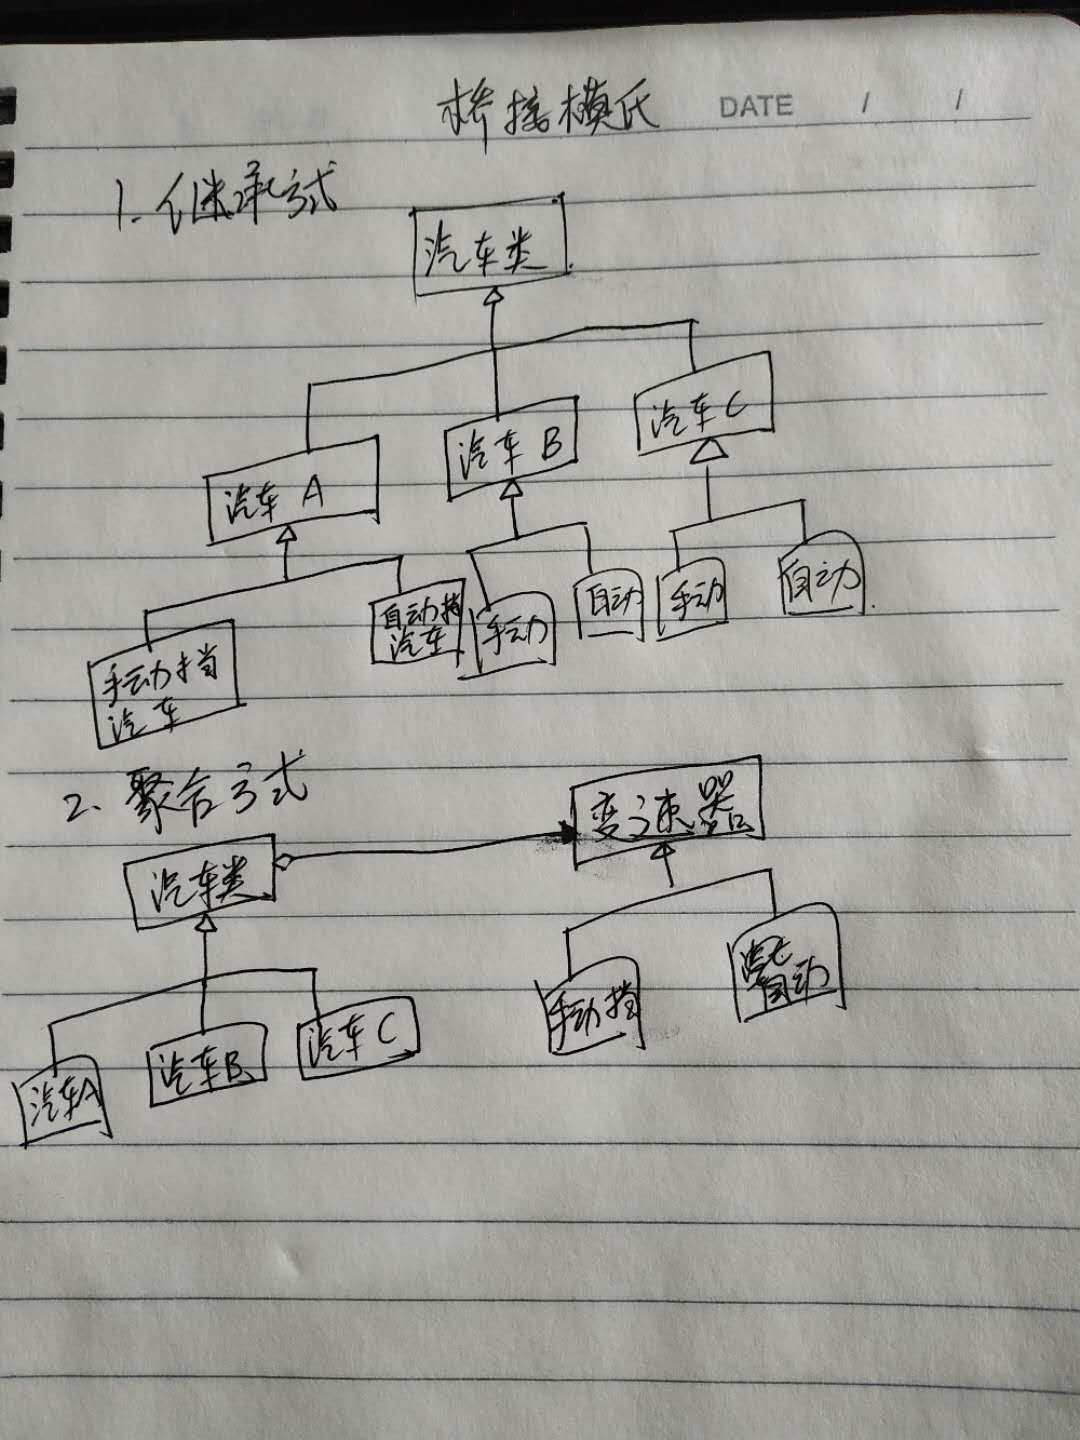 桥接模氏 DATE / /
1. 继承方式
汽车类
汽车 A
汽车 B
汽车 C
手动挡
汽车
自动挡
汽车
手动
自动
手动
自动
2. 聚合方式
汽车类
变速器
汽车A
汽车B
汽车 C
手动挡
自动